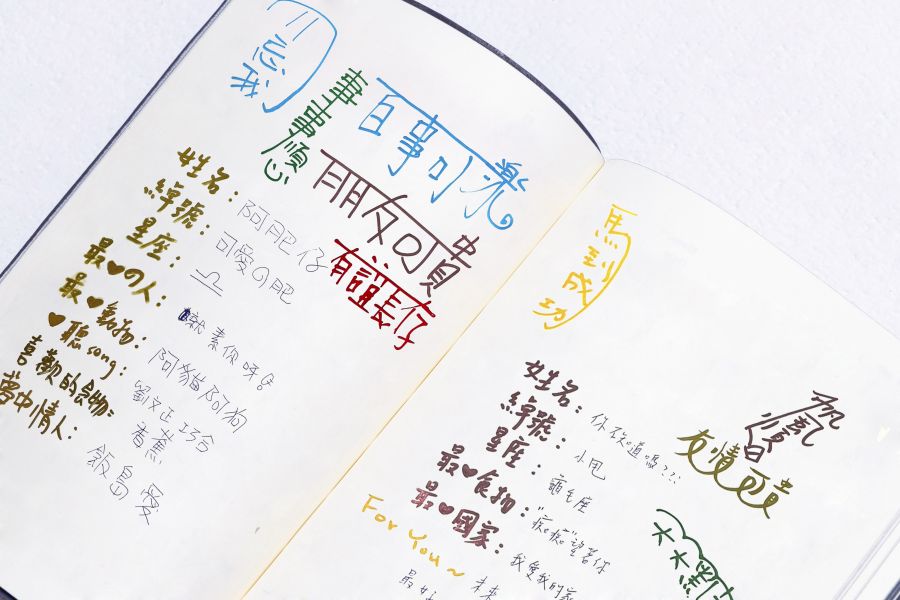 忘我
事事順心
百事可樂
朋友可貴
有誼長存
姓名：阿肥仔
綽號：可愛の肥
星座：♎
最♥の人：就素你呀！
最♥動物：阿貓阿狗
♥聽song：劉文正 巧合
喜歡的食物：香蕉
夢中情人：飯島愛
馬到成功
姓名：你不知道嗎???
綽號：小甩
星座：龜毛座
最♥食物："痴痴"望著你
最♥國家：我愛我的家
友情可貴
For You~
未來
最好